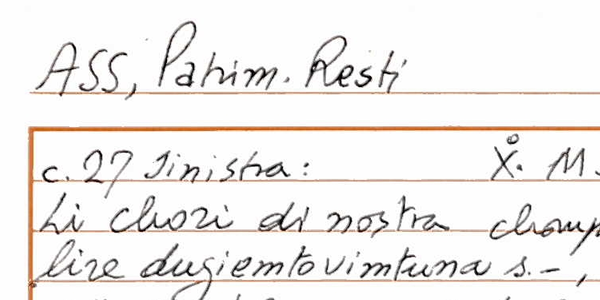 ASS, Patrim. Resti
c. 27 sinistra: X̊. M.
Li chozi di nostra chomp
lire dugiemtovimtuna s. –,